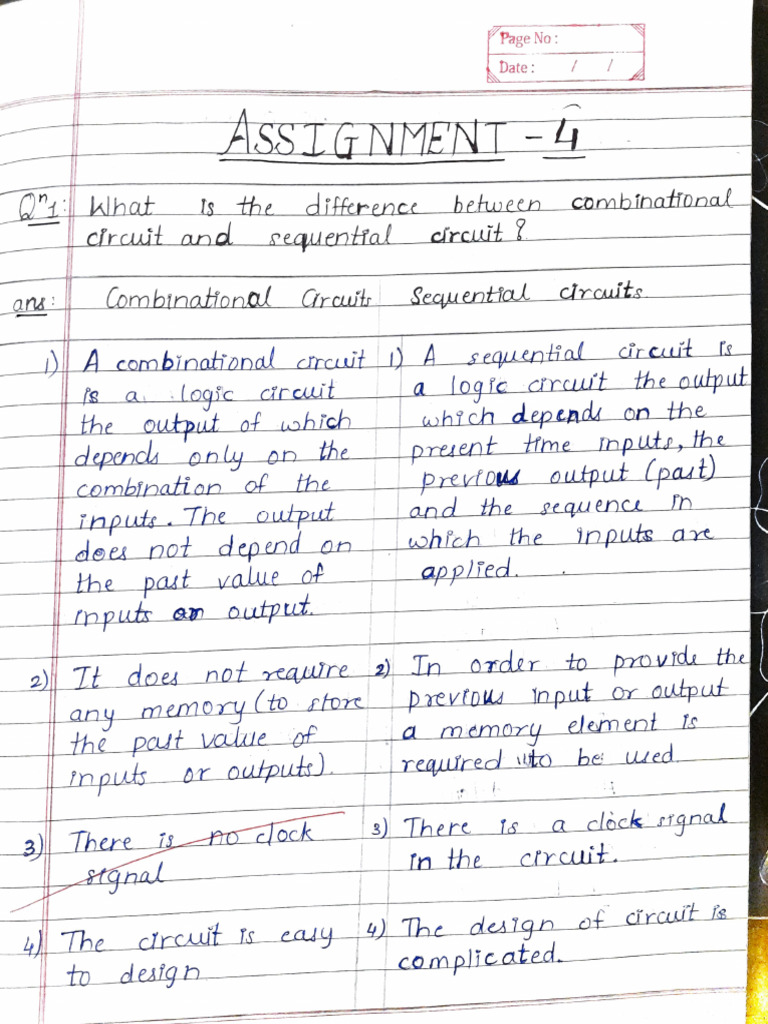 Page No :
Date : / /
ASSIGNMENT - 4
Qn1: What is the difference between combinational
circuit and sequential circuit?
ans: Combinational Circuits
1) A combinational circuit
is a logic circuit
the output of which
depends only on the
combination of the
inputs. The output
does not depend on
the past value of
inputs or output.
2) It does not require
any memory (to store
the past value of
inputs or outputs).
3) There is no clock
signal
4) The circuit is easy
to design
Sequential circuits
1) A sequential circuit is
a logic circuit the output
which depends on the
present time inputs, the
previous output (past)
and the sequence in
which the inputs are
applied.
2) In order to provide the
previous input or output
a memory element is
required to be used.
3) There is a clock signal
in the circuit.
4) The design of circuit is
complicated.